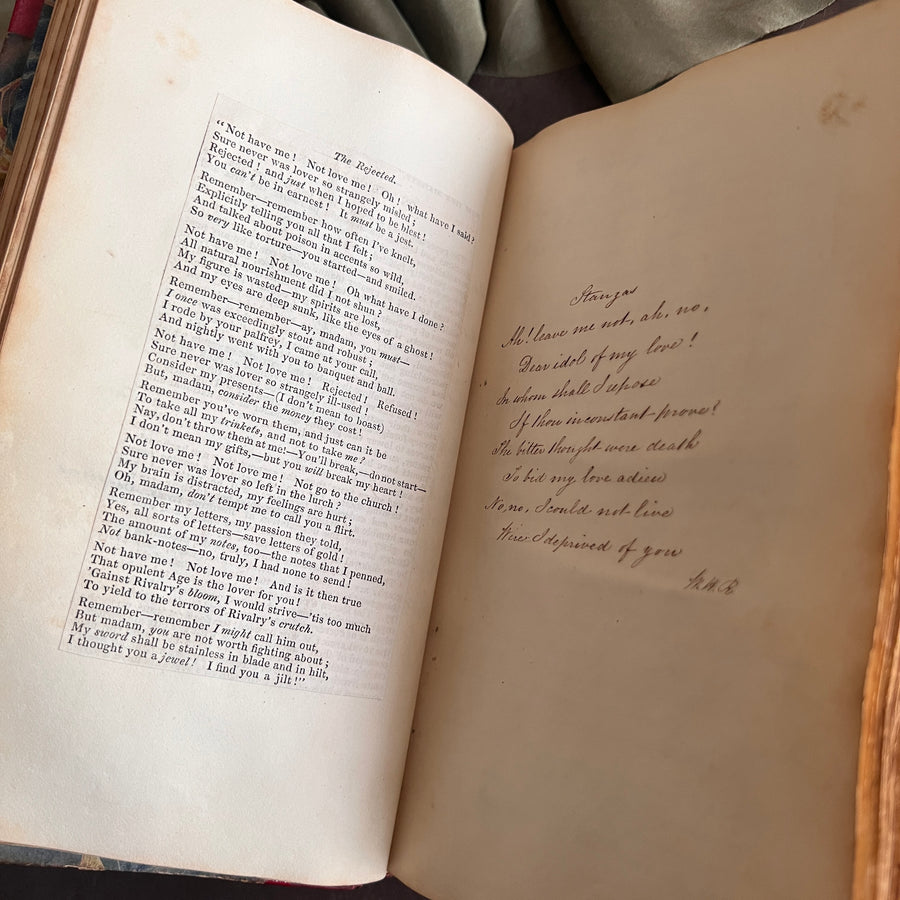 The Rejected.
“Not have me! Not love me! Oh! what have I said?
Sure never was lover so strangely misled;
Rejected! and just when I hoped to be blest!
You can't be in earnest! It must be a jest.
Remember—remember how often I've knelt,
Explicitly telling you all that I felt;
And talked about poison in accents so wild,
So very like torture—you started—and smiled.
Not have me! Not love me! Oh what have I done?
All natural nourishment did I not shun?
My figure is wasted—my spirits are lost,
And my eyes are deep sunk, like the eyes of a ghost!
Remember—remember—ay, madam, you must—
I once was exceedingly stout and robust;
I rode by your palfrey, I came at your call,
And nightly went with you to banquet and ball.
Not have me! Not love me! Rejected! Refused!
Sure never was lover so strangely ill-used!
Consider my presents—(I don't mean to boast)
But, madam, consider the money they cost!
Remember you've worn them, and just can it be
To take all my trinkets, and not to take me?
Nay, don't throw them at me!—You'll break,—do not start—
I don't mean my gifts,—but you will break my heart!
Not love me! Not love me! Not go to the church!
Sure never was lover so left in the lurch?
My brain is distracted, my feelings are hurt;
Oh, madam, don't tempt me to call you a flirt.
Remember my letters, my passion they told,
Yes, all sorts of letters—save letters of gold!
The amount of my notes, too—the notes that I penned,
Not bank-notes—no, truly, I had none to send!
Not have me! Not love me! And is it then true
That opulent Age is the lover for you!
'Gainst Rivalry's bloom, I would strive—'tis too much
To yield to the terrors of Rivalry's crutch.
Remember—remember I might call him out,
But madam, you are not worth fighting about;
My sword shall be stainless in blade and in hilt,
I thought you a jewel! I find you a jilt!”
Stanzas
Ah! leave me not, ah, no,
Dear idol of my love!
In whom shall I repose
If thou inconstant prove?
The bitter thought were death
To bid my love adieu
No, no, I could not live
Were I deprived of you